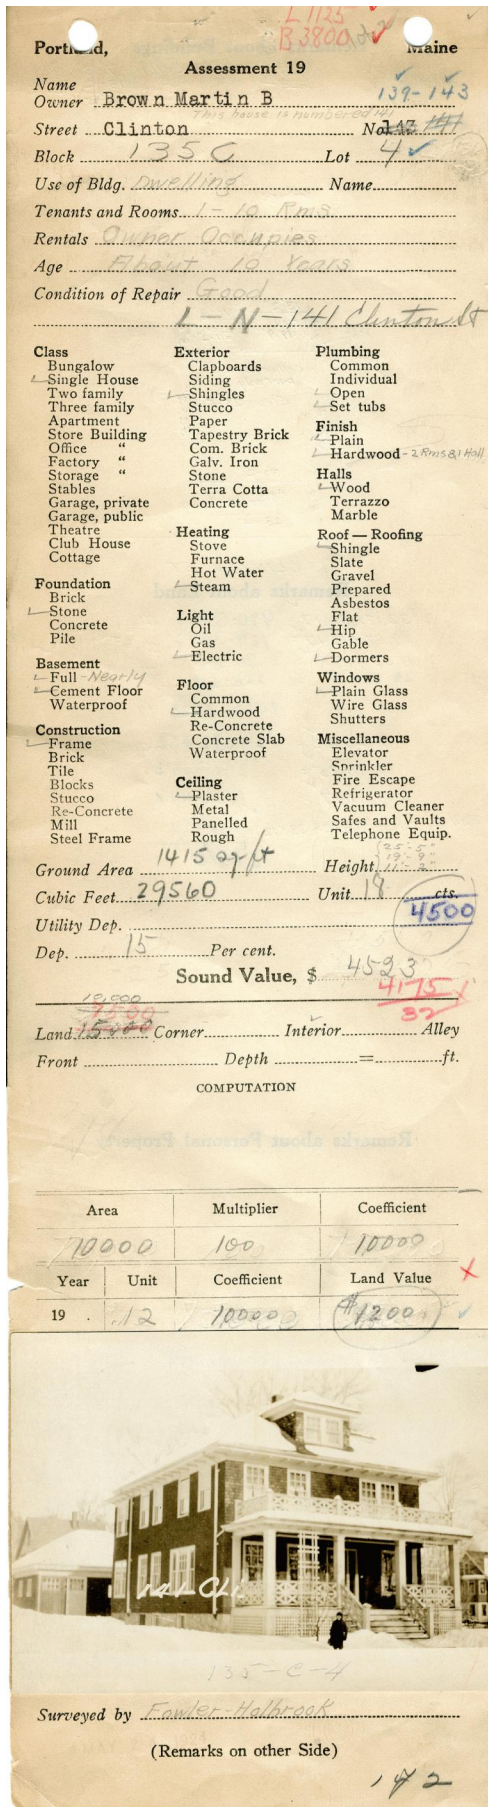 L 1125
B 3800
Portland, Maine
Assessment 19
Name
Owner Brown Martin B 139-143
This house is numbered 141
Street Clinton No. 143 141
Block 135 C Lot 4
Use of Bldg. Dwelling Name
Tenants and Rooms 1 - 10 Rms
Rentals Owner Occupies
Age About 10 Years
Condition of Repair Good
L-N-141 Clinton St
Class
Bungalow
Single House
Two family
Three family
Apartment
Store Building
Office "
Factory "
Storage "
Stables
Garage, private
Garage, public
Theatre
Club House
Cottage
Foundation
Brick
Stone
Concrete
Pile
Basement
Full - Nearly
Cement Floor
Waterproof
Construction
Frame
Brick
Tile
Blocks
Stucco
Re-Concrete
Mill
Steel Frame
Exterior
Clapboards
Siding
Shingles
Stucco
Paper
Tapestry Brick
Com. Brick
Galv. Iron
Stone
Terra Cotta
Concrete
Heating
Stove
Furnace
Hot Water
Steam
Light
Oil
Gas
Electric
Floor
Common
Hardwood
Re-Concrete
Concrete Slab
Waterproof
Ceiling
Plaster
Metal
Panelled
Rough
Plumbing
Common
Individual
Open
Set tubs
Finish
Plain
Hardwood - 2 Rms & 1 Hall
Halls
Wood
Terrazzo
Marble
Roof — Roofing
Shingle
Slate
Gravel
Prepared
Asbestos
Flat
Hip
Gable
Dormers
Windows
Plain Glass
Wire Glass
Shutters
Miscellaneous
Elevator
Sprinkler
Fire Escape
Refrigerator
Vacuum Cleaner
Safes and Vaults
Telephone Equip.
25'-5"
19'-9"
11'-2"
Ground Area 1415 sq ft Height
Cubic Feet 29560 Unit 18 cts.
4500
Utility Dep.
Dep. 15 Per cent.
Sound Value, $ 4523
4175
32
10,000
7500
Land 15000 Corner Interior Alley
Front Depth = ft.
COMPUTATION
Area Multiplier Coefficient
10000 100 10000
Year Unit Coefficient Land Value
19 . .12 10000 $1200
141-CLI
135-C-4
Surveyed by Fowler-Holbrook
(Remarks on other Side)
142